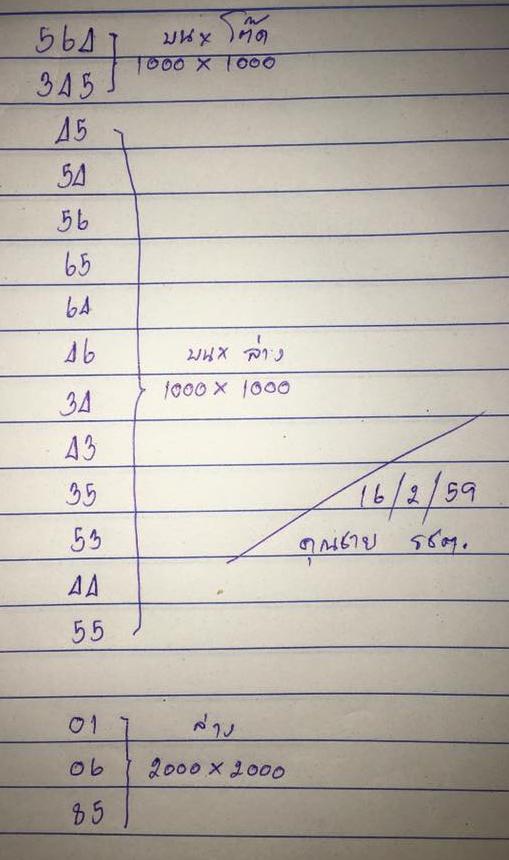 564 บน × โต๊ด
345 1000 × 1000
45
54
56
65
64
46 บน × ล่าง
34 1000 × 1000
43
35 16/2/59
53 คุณชาย รชต.
44
55
01 ล่าง
06 2000 × 2000
85